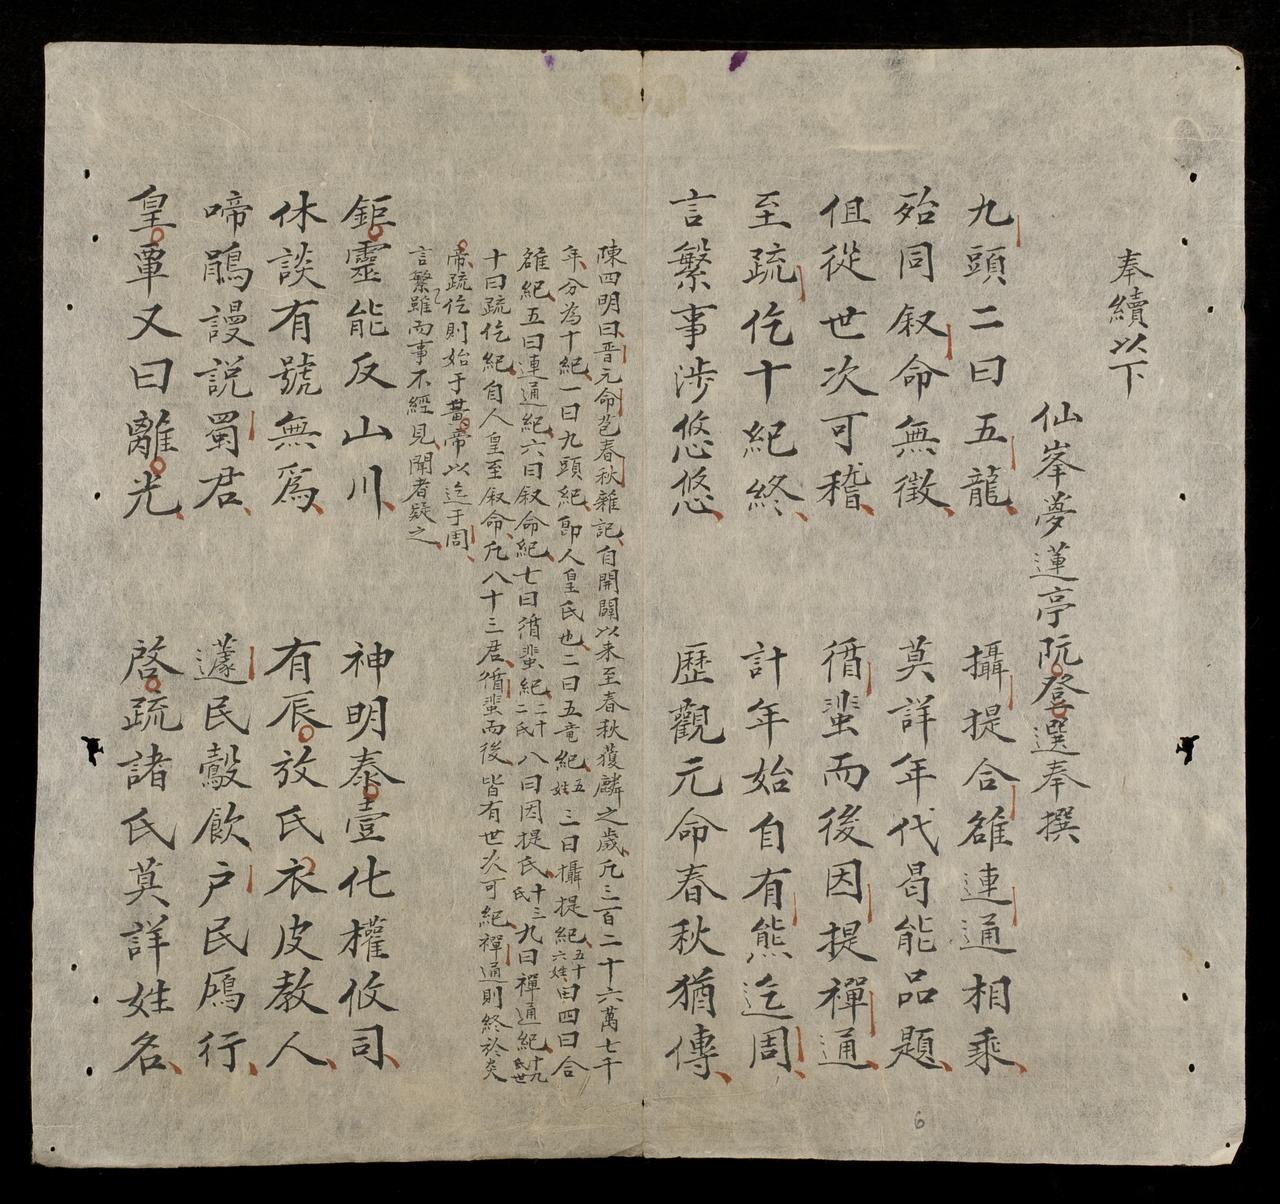 奉續以下
仙峯夢蓮亭阮登選奉撰
九頭二曰五龍 攝提合雒連通相乘
殆同叙命無徵 莫詳年代曷能品題
伹從世次可稽 循蜚而後因提禪通
至疏仡十紀終 計年始自有熊迄周
言繁事涉悠悠 歷觀元命春秋猶傳
陳四明曰晋元命苞春秋雜記自開闢以来至春秋獲麟之歲凢三百二十六萬七千
年分為十紀一曰九頭紀即人皇氏也二曰五竜紀五姓三曰攝提紀五十六姓四曰合
雒紀五曰連通紀六曰叙命紀七曰循蜚紀二十二氏八曰因提氏十三氏九曰禪通紀十九氏世
十曰疏仡紀自人皇至叙命凢八十三君循蜚而後皆有世次可紀禪通則終於炎
帝疏仡則始于黄帝以迄于周
言繁雖而事不經見聞者疑之
鉅靈能反山川 神明泰壹化權攸司
休談有號無爲 有辰放氏衣皮教人
啼鵑謾説蜀君 蘧民鷇飲户民鴈行
皇覃又曰離光 啓疏諸氏莫詳姓名
6